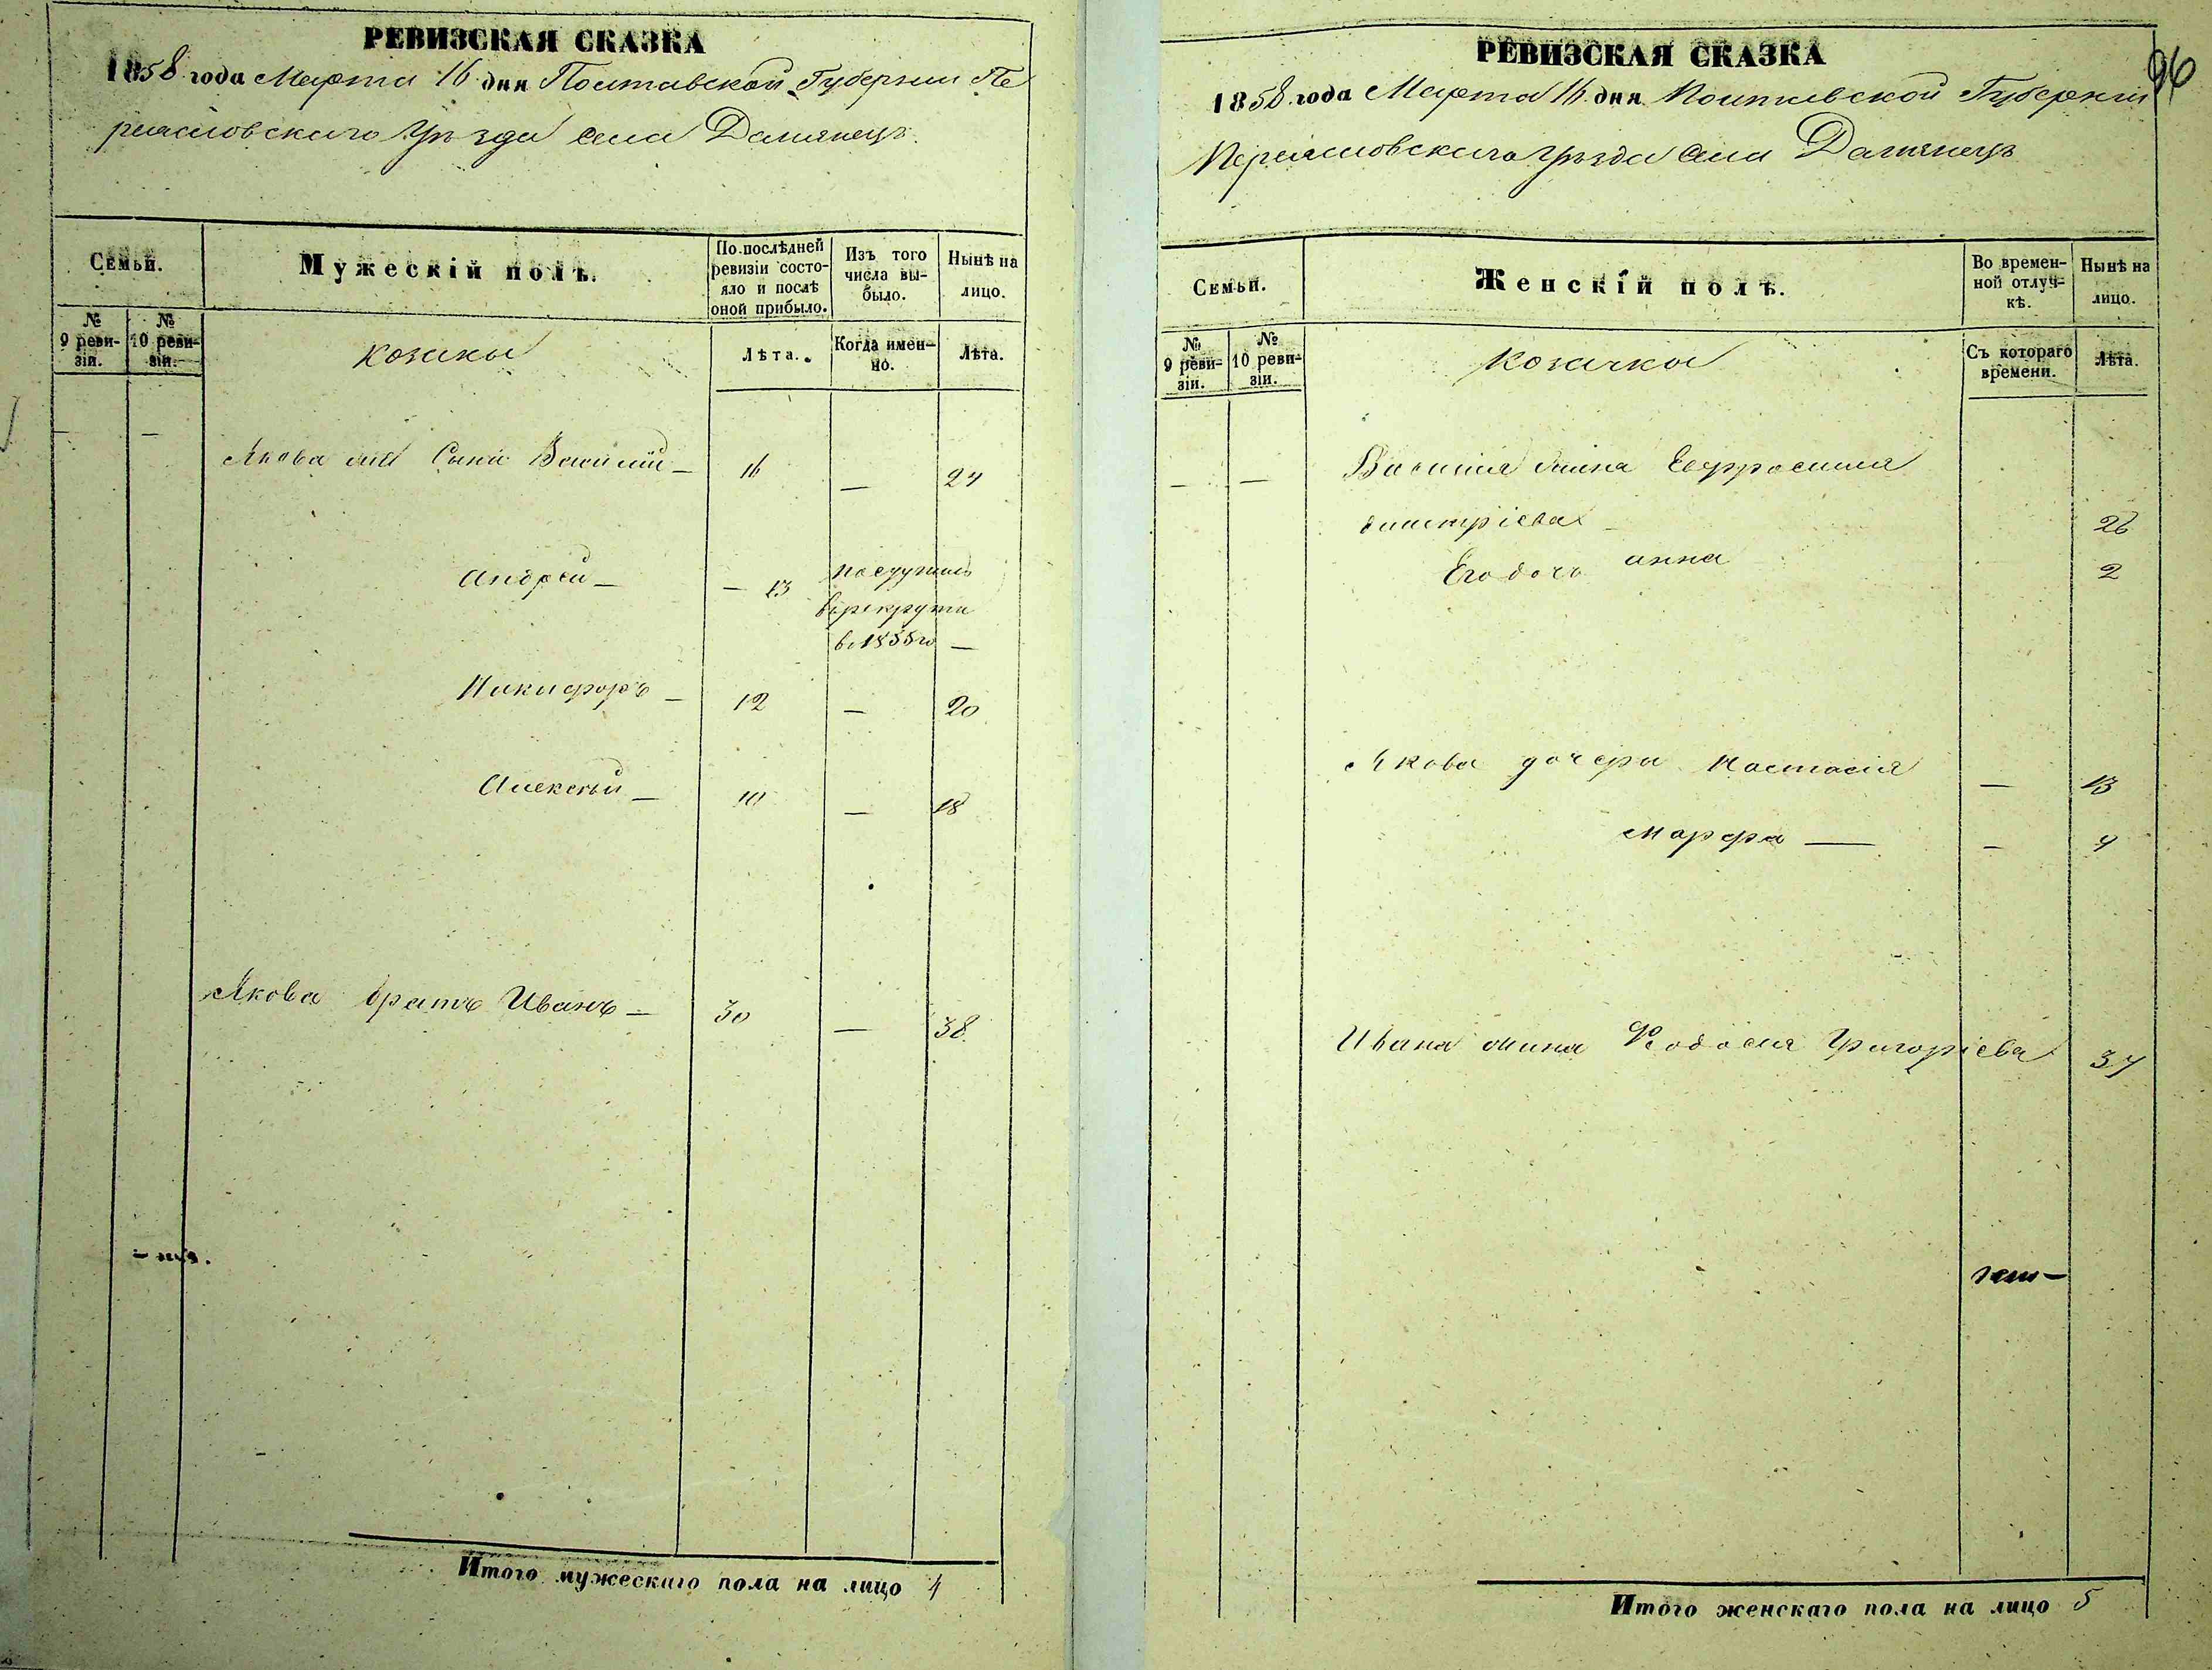 РЕВИЗСКАЯ СКАЗКА
1858 года Марта 16 дня Полтавской Губернии Пе
реяславскаго Уезда села Демянецъ
Семьи.
Мужескій полъ.
По послѣдней
ревизіи состо-
яло и послѣ
оной прибыло.
Изъ того
числа вы-
было.
Нынѣ на
лицо.
№
9 реви-
зіи.
№
10 реви-
зіи.
козаки
Лѣта.
Когда имен-
но.
Лѣта.
— —
Якова Сыны Василій — 16 — 24
Андрей — — 13 поступилъ
в рекруты
в 1855 го —
Никифоръ — 12 — 20
Алексѣй — 10 — 18
Якова братъ Иванъ — 30 — 38
Итого мужескаго пола на лицо 4
96
РЕВИЗСКАЯ СКАЗКА
1858 года Марта 16 дня Полтавской Губерніи
Переяславскаго Уезда села Демянецъ
Семьи.
Женскій полъ.
Во времен-
ной отлуч-
кѣ.
Нынѣ на
лицо.
№
9 реви-
зіи.
№
10 реви-
зіи.
козачки
Съ котораго
времени.
Лѣта.
— —
Василія жина Евфросинія
дмитріева — 26
Его дочь анна 2
Якова дочери Настасія — 13
Марфа — —
Ивана жина Феодосія Григоріева 37
Итого женскаго пола на лицо 5